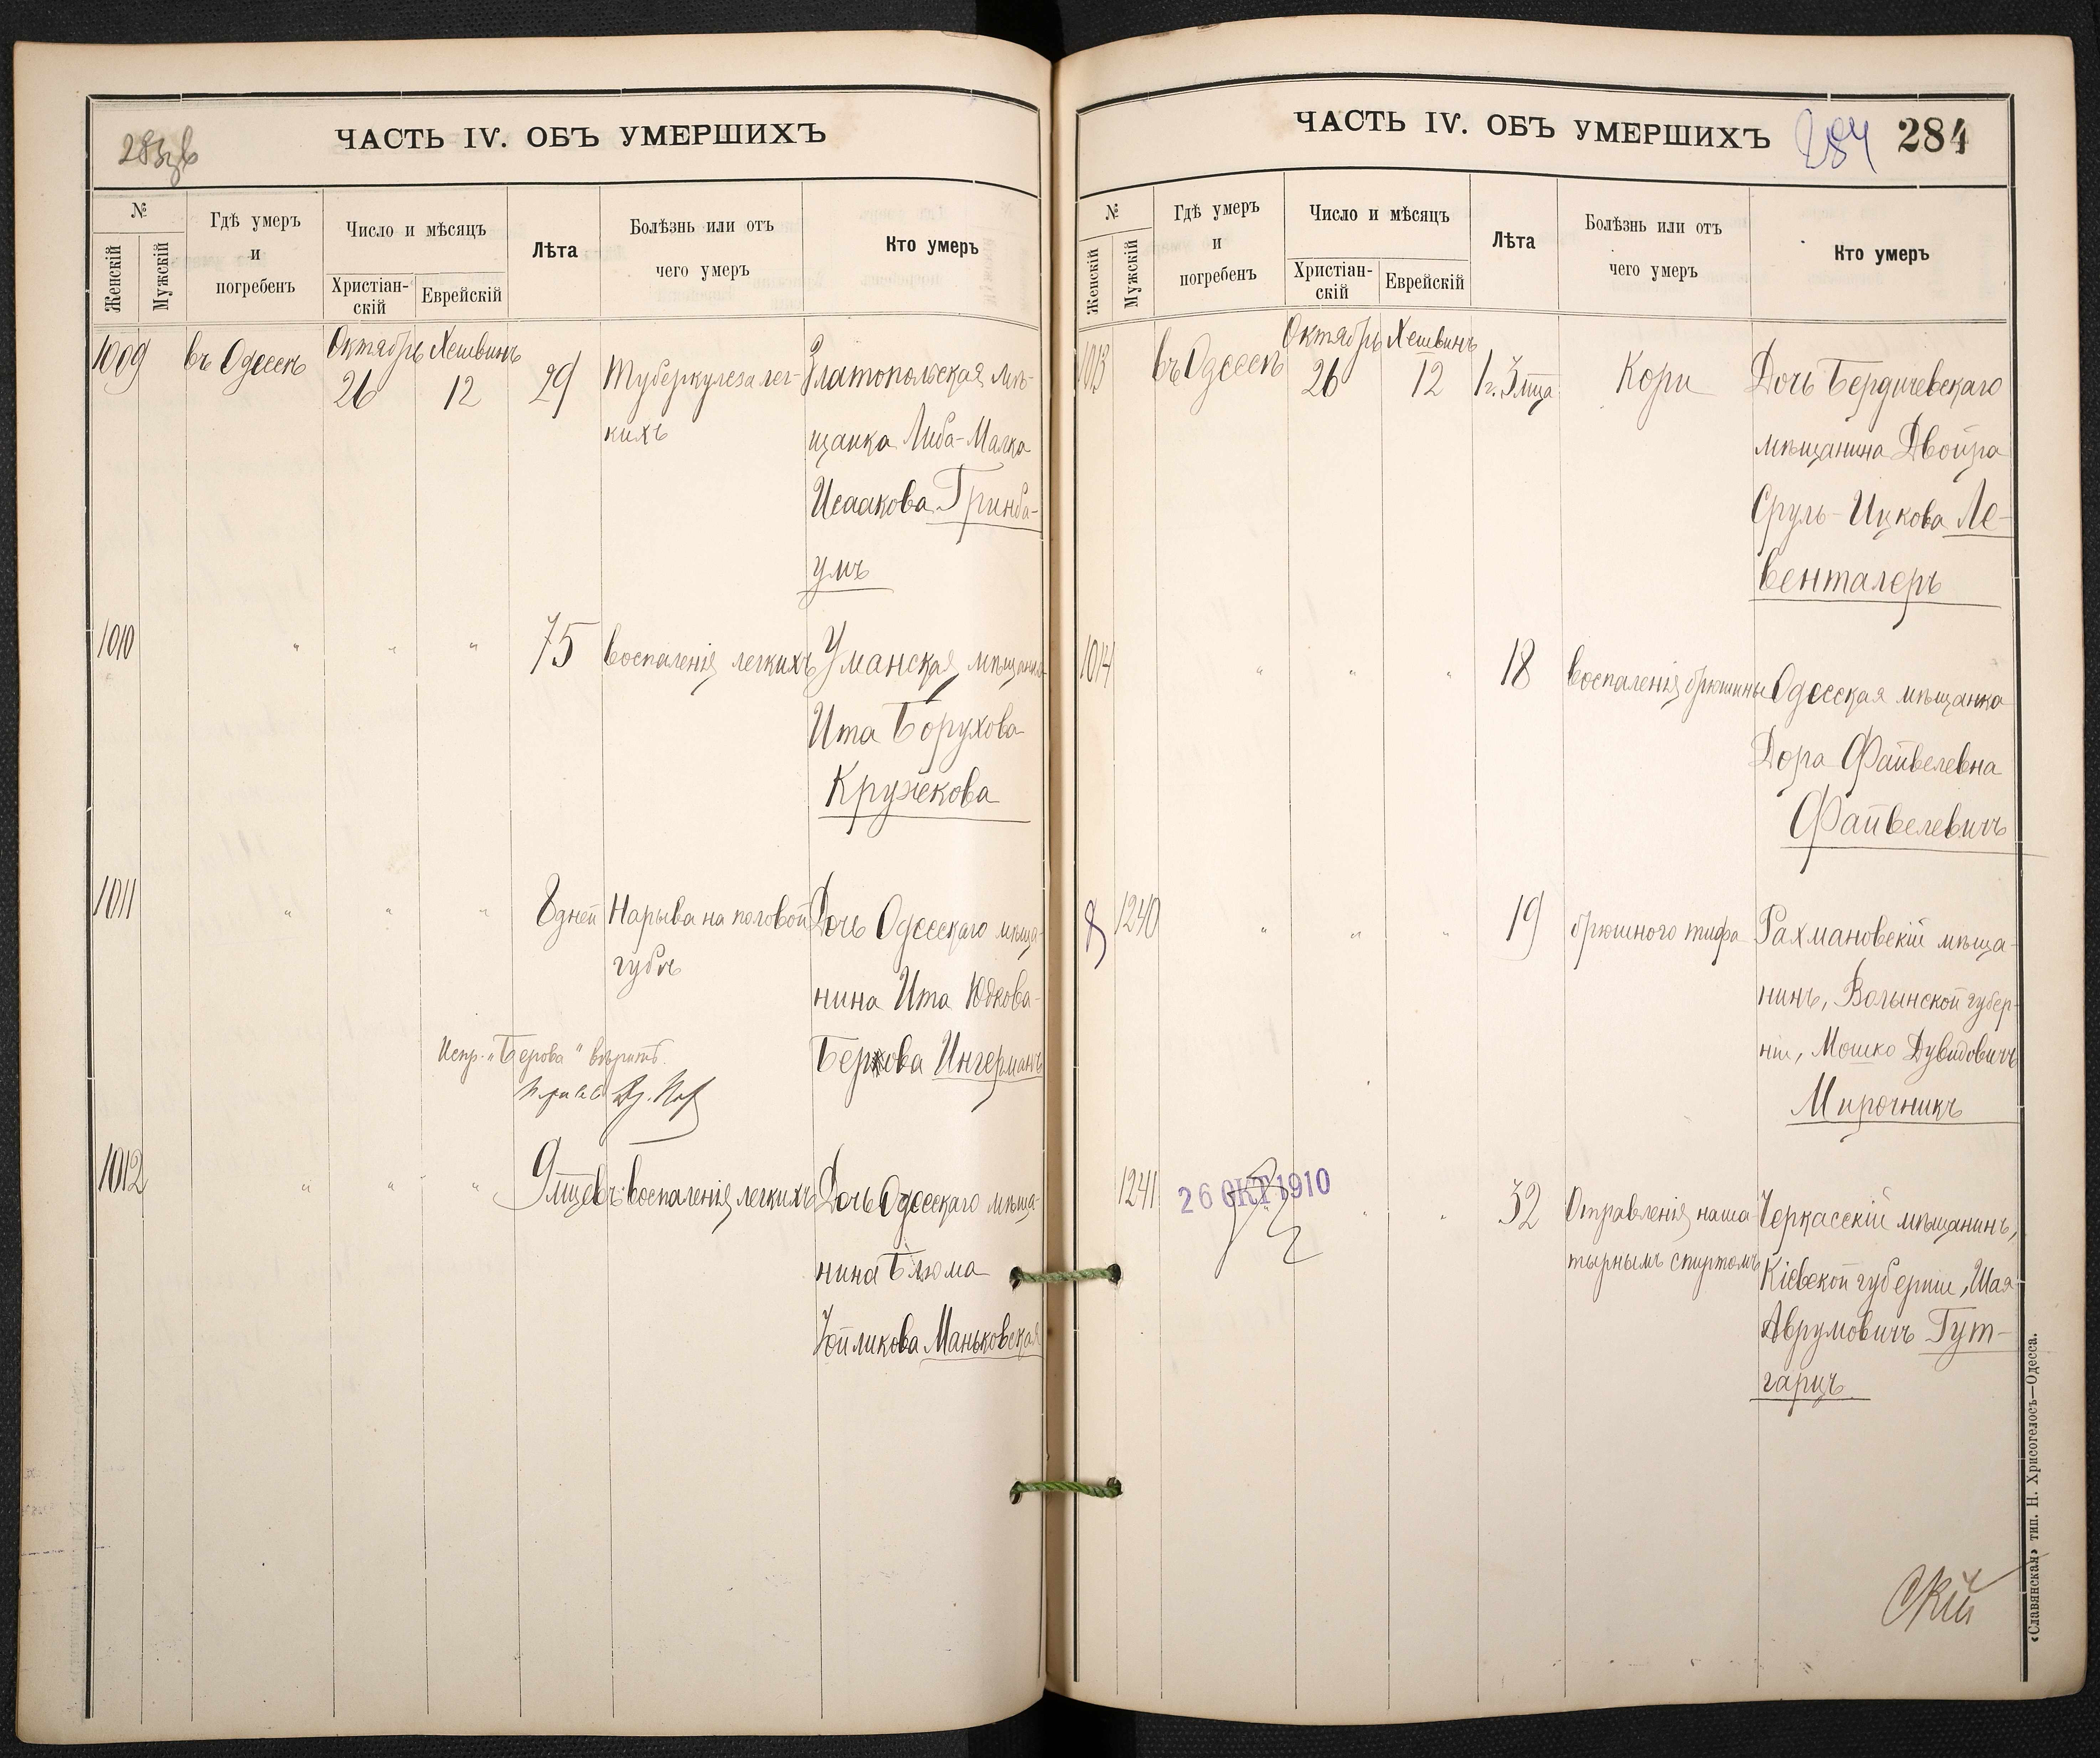 283 об
ЧАСТЬ IV. ОБЪ УМЕРШИХЪ
№
Женскій
Мужскій
Гдѣ умеръ
и
погребенъ
Число и мѣсяцъ
Христіан-
скій
Еврейскій
Лѣта
Болѣзнь или отъ
чего умеръ
Кто умеръ
1009 въ Одессѣ Октябрь 26 Хешвинъ 12 29 Туберкулеза лег- Златопольская мѣ-
кихъ щанка Либа-Малка
Исаакова Гринба-
умъ
1010 " " " 75 Воспаленія легкихъ Уманская мѣщанка
Ита Борухова
Кружекова
1011 " " " 8 дней Нарыва на половой Дочь Одесскаго мѣща-
губѣ нина Ита Юдкова-
Берова Ингерманъ
Испр. "Берова" вѣрить.
1012 " " " 9 мцевъ Воспаленія легкихъ Дочь Одесскаго мѣща-
нина Блюма
Іойликова Маньковская
ЧАСТЬ IV. ОБЪ УМЕРШИХЪ 284 284
№
Женскій
Мужскій
Гдѣ умеръ
и
погребенъ
Число и мѣсяцъ
Христіан-
скій
Еврейскій
Лѣта
Болѣзнь или отъ
чего умеръ
Кто умеръ
1013 въ Одессѣ Октябрь 26 Хешвинъ 12 1 г. 3 мца Кори Дочь Бердичевскаго
мѣщанина Двойра
Сруль-Ицкова Ле-
венталеръ
1014 " " " 18 Воспаленія брюшины Одесская мѣщанка
Дора Файвелевна
Файвелевичъ
1240 " " " 19 брюшного тифа Рахмановскій мѣща-
нинъ, Волынской губер-
ніи, Мошко Дувидовичъ
Мирочникъ
1241 26 ОКТ 1910 " " 32 Отравленія наша- Черкасскій мѣщанинъ,
тырнымъ спиртомъ Кіевской губерніи, Шая
Аврумовичъ Гут-
гарцъ
скій
«Славянская» тип. Н. Хрисогелосъ—Одесса.